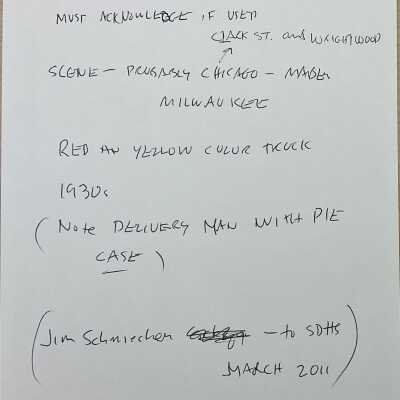 MUST ACKNOWLEDGE IF USED
CLARK ST. and WRIGHTWOOD
SCENE — PROBABLY CHICAGO — MAYBE
MILWAUKEE
RED AN YELLOW COLOR TRUCK
1930s
(NOTE DELIVERY MAN WITH PIE
CASE)
(Jim Schmiechen — to SDHS
MARCH 2011)